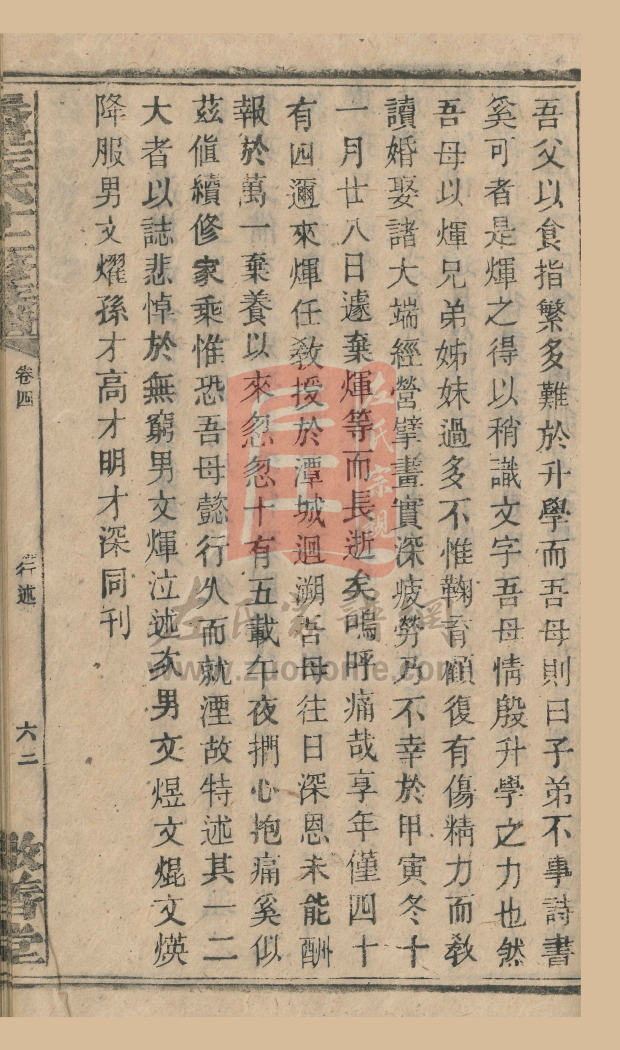 吾父以食指繁多難於升學而吾母則曰子弟不事詩書
奚可者是煇之得以稍識文字吾母情殷升學之力也然
吾母以煇兄弟姊妹過多不惟鞠育顧復有傷精力而教
讀婚娶諸大端經營擘畫實深疲勞乃不幸於甲寅冬十
一月廿八日遽棄煇等而長逝矣嗚呼痛哉享年僅四十
有四邇來煇任教授於潭城迴溯吾母往日深恩未能酬
報於萬一棄養以來忽忽十有五載午夜捫心抱痛奚似
茲值續修家乘惟恐吾母懿行久而就湮故特述其一二
大者以誌悲悼於無窮男文煇泣述次男文煜文焜文煐
降服男文燿孫才高才明才深同刊
卷四
行述
六二
敬善堂
左氏宗親
左氏宗譜網
www.zuotohome.com